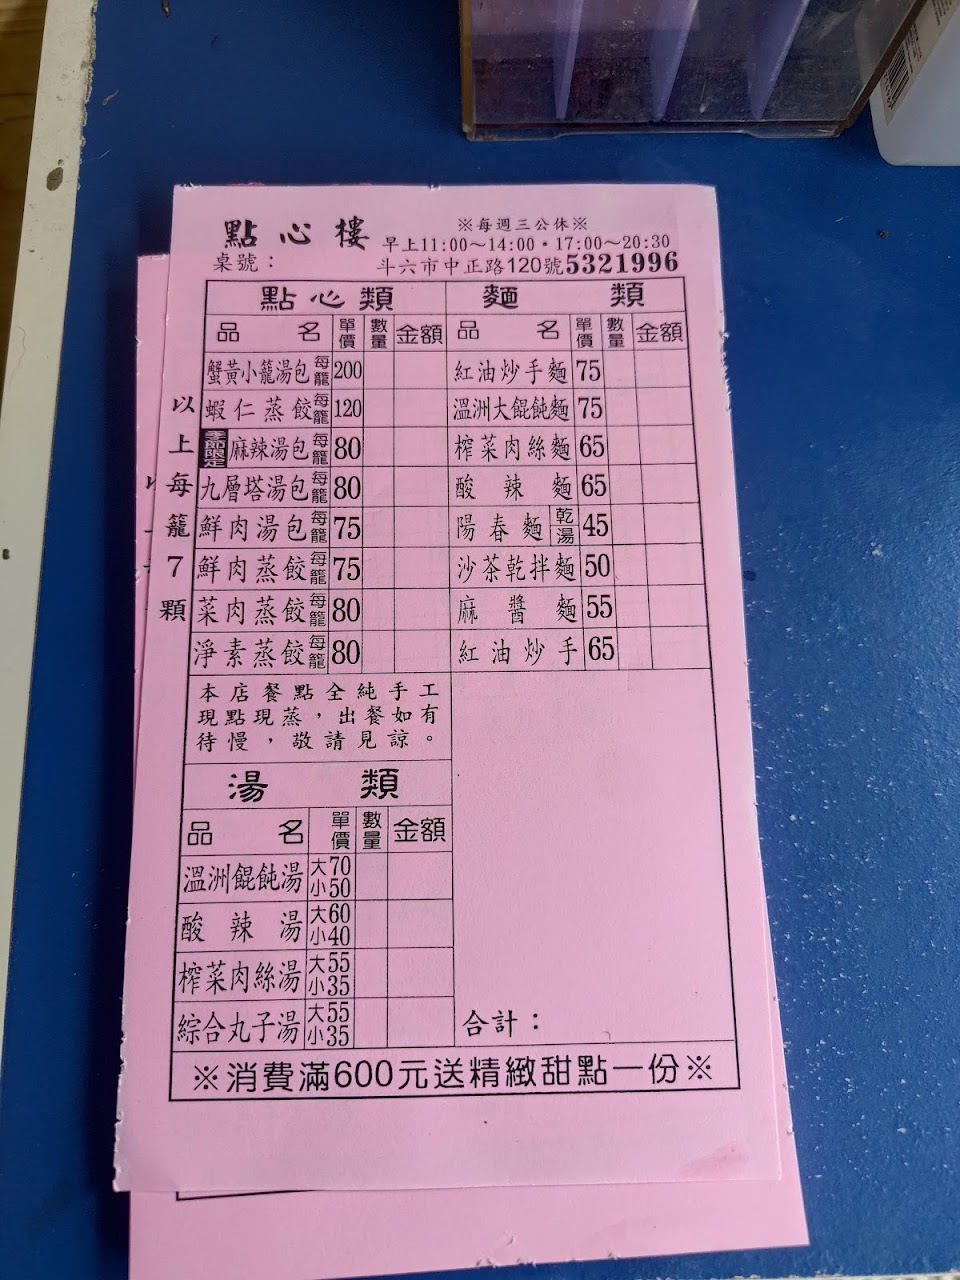 點心樓
※每週三公休※
早上11:00～14:00・17:00～20:30
桌號：
斗六市中正路120號5321996
點心類
品名 單價 數量 金額
蟹黃小籠湯包 每籠 200
蝦仁蒸餃 每籠 120
季節限定 麻辣湯包 每籠 80
九層塔湯包 每籠 80
鮮肉湯包 每籠 75
鮮肉蒸餃 每籠 75
菜肉蒸餃 每籠 80
淨素蒸餃 每籠 80
以上每籠7顆
麵類
品名 單價 數量 金額
紅油炒手麵 75
溫洲大餛飩麵 75
榨菜肉絲麵 65
酸辣麵 65
陽春麵 乾湯 45
沙茶乾拌麵 50
麻醬麵 55
紅油炒手 65
本店餐點全純手工
現點現蒸，出餐如有
待慢，敬請見諒。
湯類
品名 單價 數量 金額
溫洲餛飩湯 大70 小50
酸辣湯 大60 小40
榨菜肉絲湯 大55 小35
綜合丸子湯 大55 小35
合計：
※消費滿600元送精緻甜點一份※